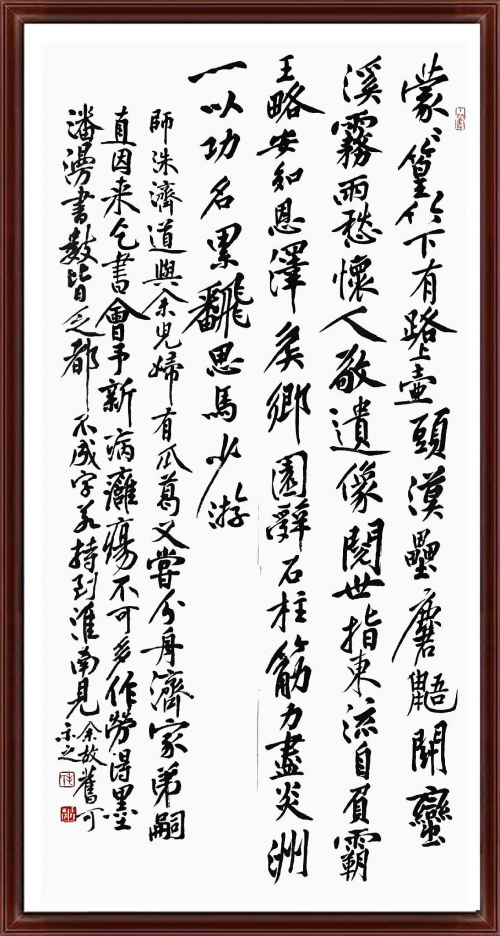 蒙蒙篁竹下有路上壺頭漢壘麏鼯鬭蠻
溪霧雨愁懷人敬遺像閱世指東流自負霸
王略安知恩澤侯鄉園辭石柱筋力盡炎洲
一以功名累飜思馬少游
師洙濟道與余兒婦有瓜葛又嘗分舟濟家弟嗣
直因来乞書會予新病癰瘍不可多作勞得墨
潘漫書數皆乏都不成字若持到淮南見余故舊可
示之